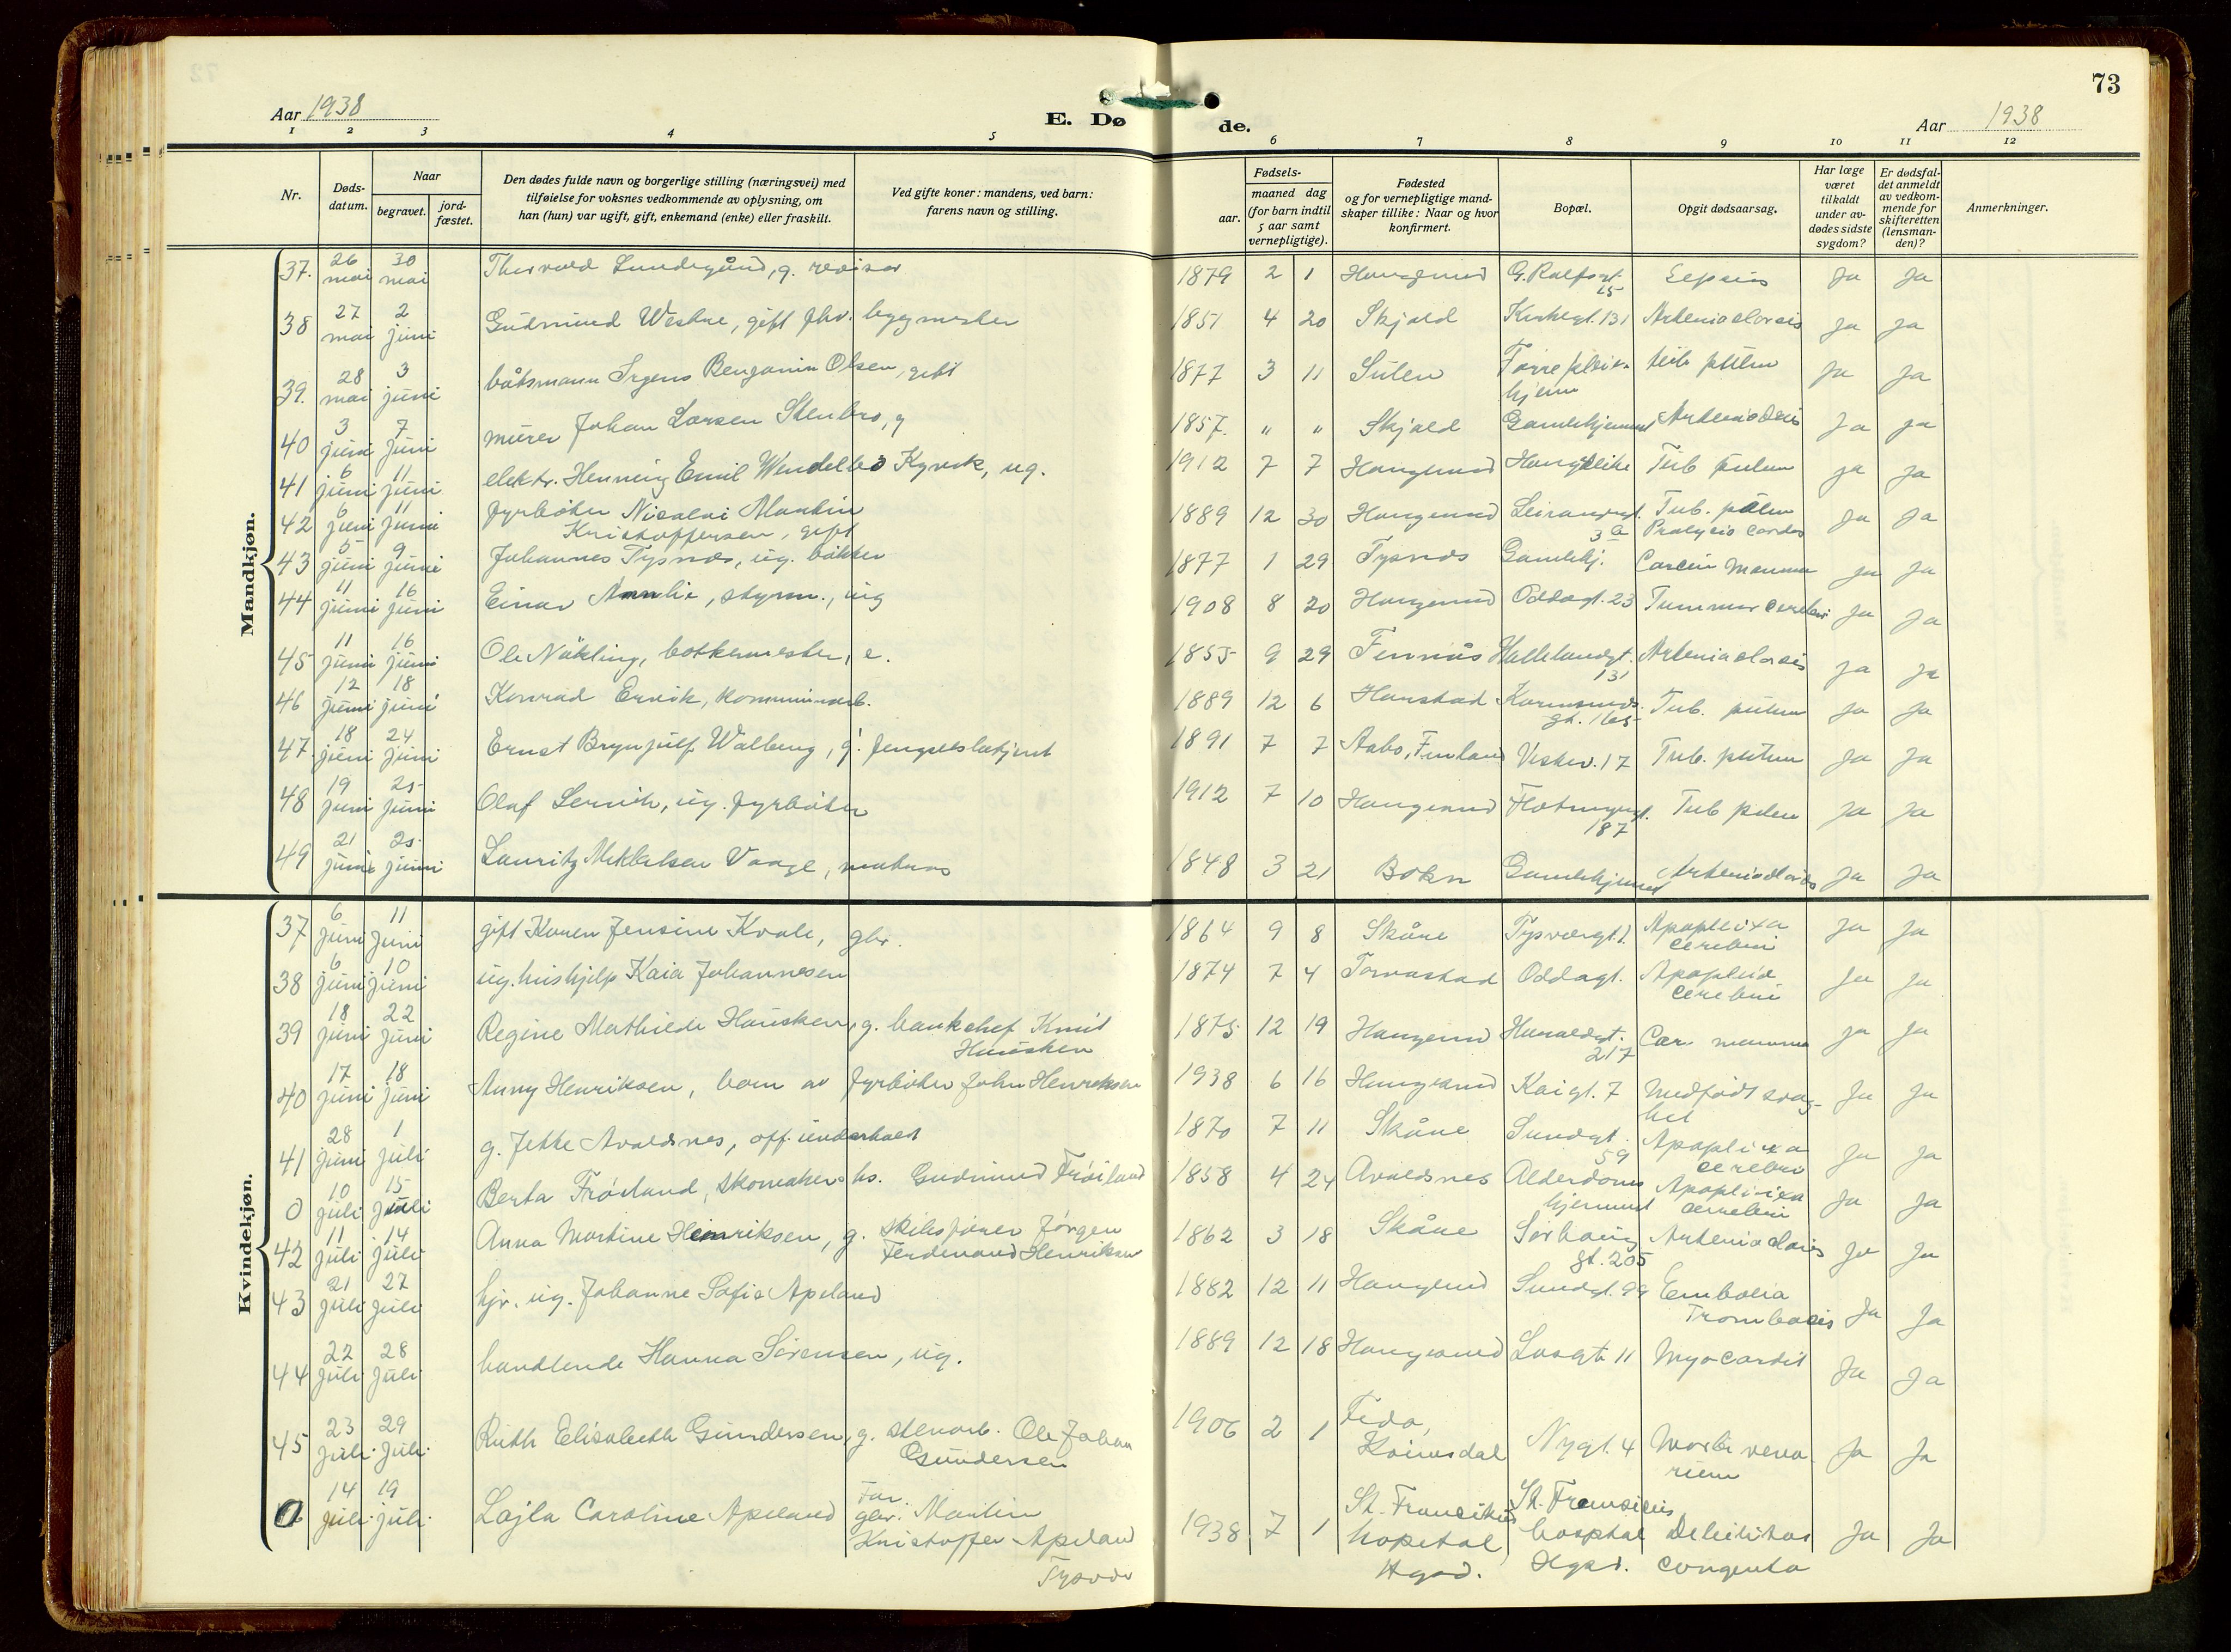 73
Aar 1938
E. Dø de.
Aar 1938
1 2 3 4 5 6 7 8 9 10 11 12
Nr.
Døds-datum.
Naar
begravet.
jord-fæstet.
Den dødes fulde navn og borgerlige stilling (næringsvei) med
tilføielse for voksnes vedkommende av oplysning, om
han (hun) var ugift, gift, enkemand (enke) eller fraskilt.
Ved gifte koner: mandens, ved barn:
farens navn og stilling.
Fødsels-
aar.
maaned dag
(for barn indtil
5 aar samt
vernepligtige).
Fødested
og for vernepligtige mand-
skaper tillike: Naar og hvor
konfirmert.
Bopæl.
Opgit dødsaarsag.
Har læge
været
tilkaldt
under av-
dødes sidste
sygdom?
Er dødsfal-
det anmeldt
av vedkom-
mende for
skifteretten
(lensman-
den)?
Anmerkninger.
Mandkjøn.
37. 26 mai 30 mai Thorvald Lundegård, g. revisor 1879 2 1 Haugesund G. Rolfsgt. 15 Sepsis Ja Ja
38 27 mai 2 juni Gudmund Westre, gift fhv. bygmester 1851 4 20 Skjold Kirkegt. 131 Arteriosclerosis Ja Ja
39. 28 mai 3 juni båtsmann Irgens Benjamin Olsen, gift 1877 3 11 Sulen hjem tub. pulm Ja Ja
40 3 juni 7 juni murer Johan Larsen Stenbro, g 1857. " " Skjold Gamlehjemmet Ja Ja
41 6 juni 11 juni elektr. Henning Emil Wendelbo Kyvik, ug. 1912 7 7 Haugesund Tub pulm Ja Ja
42 6 juni 11 juni fyrbøter Nicolai Martin Kristoffersen, gift 1889 12 30 Haugesund 3a Tub. pulm Ja Ja
43 5 juni 9 juni Johannes Tysnes, ug. bøkker 1877 1 29 Tysnes Gamlehj. Carcin mamma Ja Ja
44 11 juni 16 juni Einar Amlie, styrm., ug 1908 8 20 Haugesund Oddagt. 23 Tummor cerebri Ja Ja
45 11 juni 16 juni Ole Nökling, bøtkermester, e. 1855 9 29 Finnås 131 Arteriosclorosis Ja Ja
46 12 juni 18 juni Konrad Ervik, kommunearb. 1889 12 6 Karmsunds gt. 165 Tub. pulm Ja Ja
47. 18 juni 24 juni Ernst Brynjulf Walberg, g. fengselsbetjent 1891 7 7 Aabo, Finland 17 Tub. pulm Ja Ja
48 19 juni 25 juni Olaf Lervik, ug. fyrbøter 1912 7 10 Haugesund 187 Tub pulm Ja Ja
49 21 juni 25 juni Lauritz Mikkelsen Vaage, matros 1848 3 21 Bokn Gamlehjemmet Arteriosclorosis Ja Ja
Kvindekjøn.
37 6 juni 11 juni gift Konen Jensine Kvale, gbr. 1864 9 8 Skåre Tysværgt. 1. Apoplexia cerebri Ja Ja
38 6 juni 10 juni ug. hushjelp Kaia Johannesen 1874 7 4 Torvastad Oddagt. Apoplexia cerebri Ja Ja
39 18 juni 22 juni Regine Mathilde Hausken, g. bankchef Knut Hausken 1875 12 19 Haugesund Haraldsgt. 217 Car mamma Ja Ja
40 17 juni 18 juni Anny Henriksen, barn av fyrbøter John Henriksen 1938 6 16 Haugesund Kaigt. 7 medfødt svag-het Ja Ja
41 28 juni 1 juli g. Jette Avaldsnes, off. underholdt 1870 7 11 Skåre Sundgt. 59 Apoplexia cerebri Ja Ja
0 10 juli 15 juli Berta Frøiland, skomakers hs. Gudmund Frøiland 1858 4 24 Avaldsnes Alderdoms hjemmet Apoplexia cerebri Ja Ja
42 11 juli 14 juli Anna Martine Henriksen, g. skibsfører Jørgen Ferdinand Henriksen 1862 3 18 Skåre Sørhaug gt. 205 Arteriosclorosis Ja Ja
43 21 juli 27 juli hjv. ug. Johanne Sofie Apeland 1882 12 11 Haugesund Sundgt. 99 Embolia Trombosis Ja Ja
44 22 juli 28 juli handlende Hanna Sørensen, ug. 1889 12 18 Haugesund Losgt 11 Myocardit Ja Ja
45 23 juli 29 juli Ruth Elisabeth Gundersen, g. stenarb. Ole Johan Gundersen 1906 2 1 Feda, Kvinesdal Nygt. 4 Ja Ja
0 14 juli 19 juli Lajla Caroline Apeland Far. gbr. Martin Kristoffer Apeland Tysvær 1938 7 1 St. Franciskus hospital Hgsd. St. Franciscus hospital Hgsd. Debilitas congenita Ja Ja